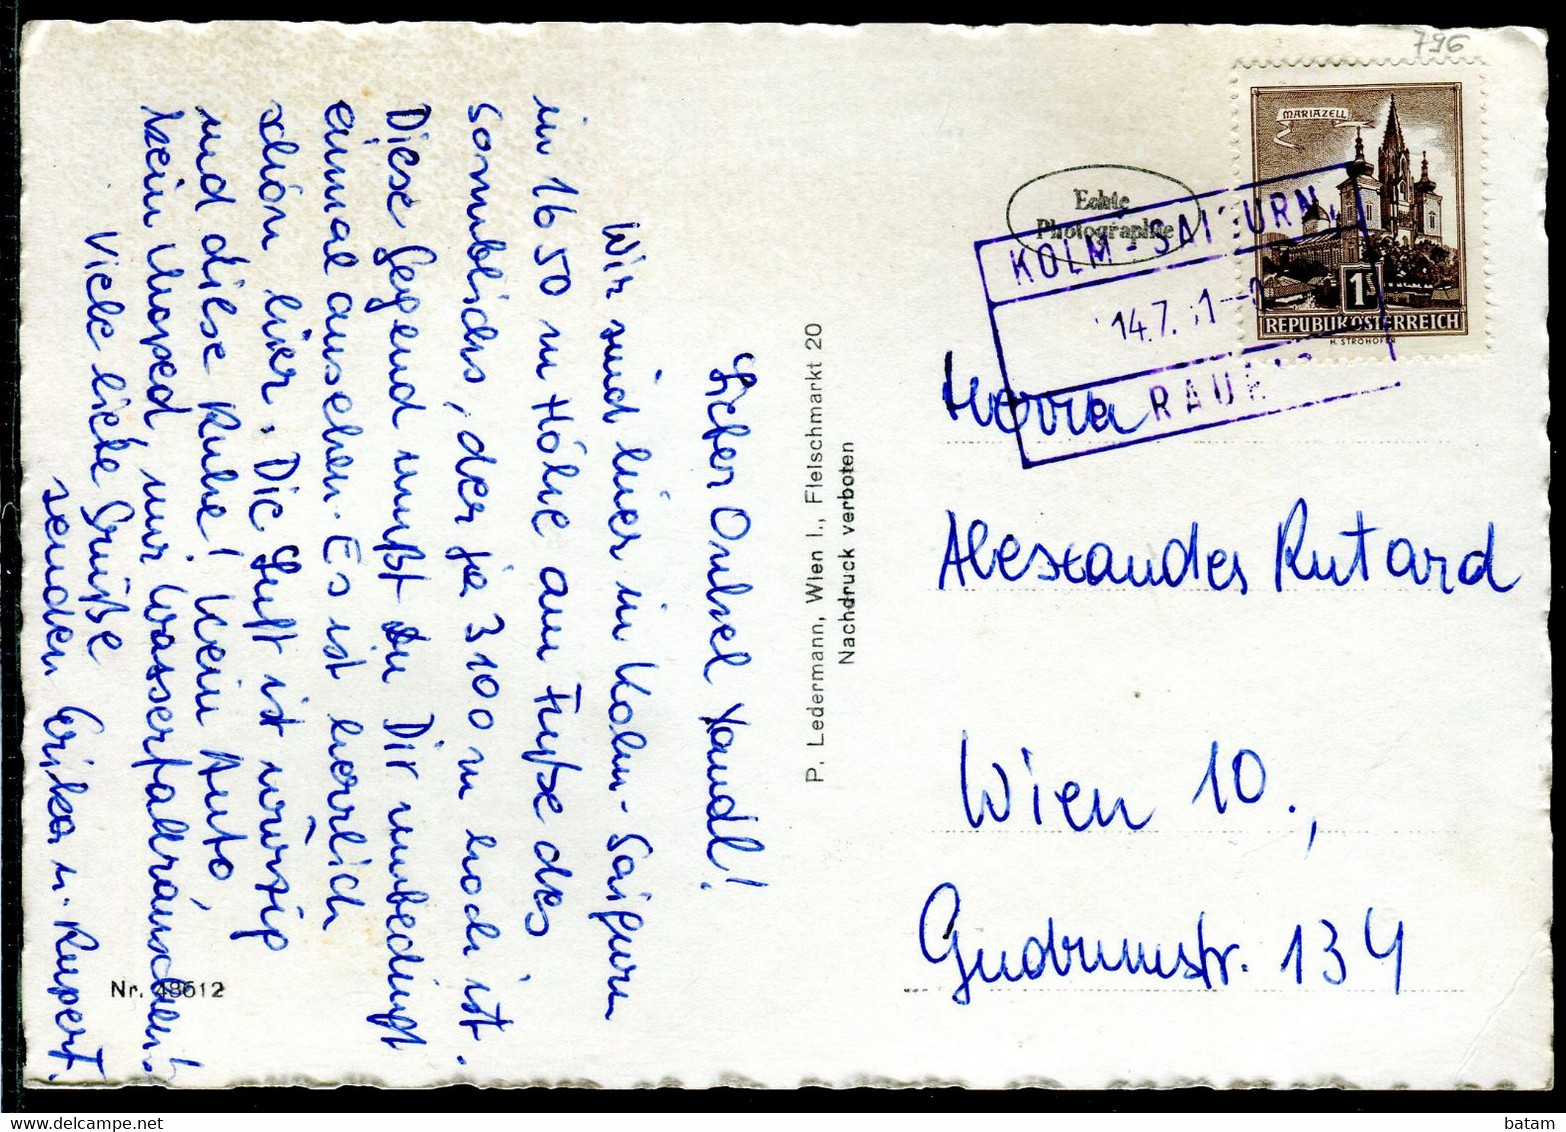 Lieber Onkel Xandl!
Wir sind hier in Kolm-Saigurn
in 1650 m Höhe am Fuße des
Sonnblicks, der ja 3100 m hoch ist.
Diese Gegend mußt Du Dir unbedingt
einmal ansehen. Es ist herrlich
schön hier. Die Luft ist würzig
und diese Ruhe! Kein Auto,
kein Moped, nur Wasserfallrauschen!
Viele liebe Grüße
senden Erika u. Rupert.
Nr. 48612
P. Ledermann, Wien I., Fleischmarkt 20
Nachdruck verboten
796
MARIAZELL
1S
REPUBLIK ÖSTERREICH
H. STROHOFER
Echte
Photographie
KOLM-SAIGURN
14.7.
RAURIS
Herrn
Alexander Rutard
Wien 10.,
Gudrunstr. 134
batam